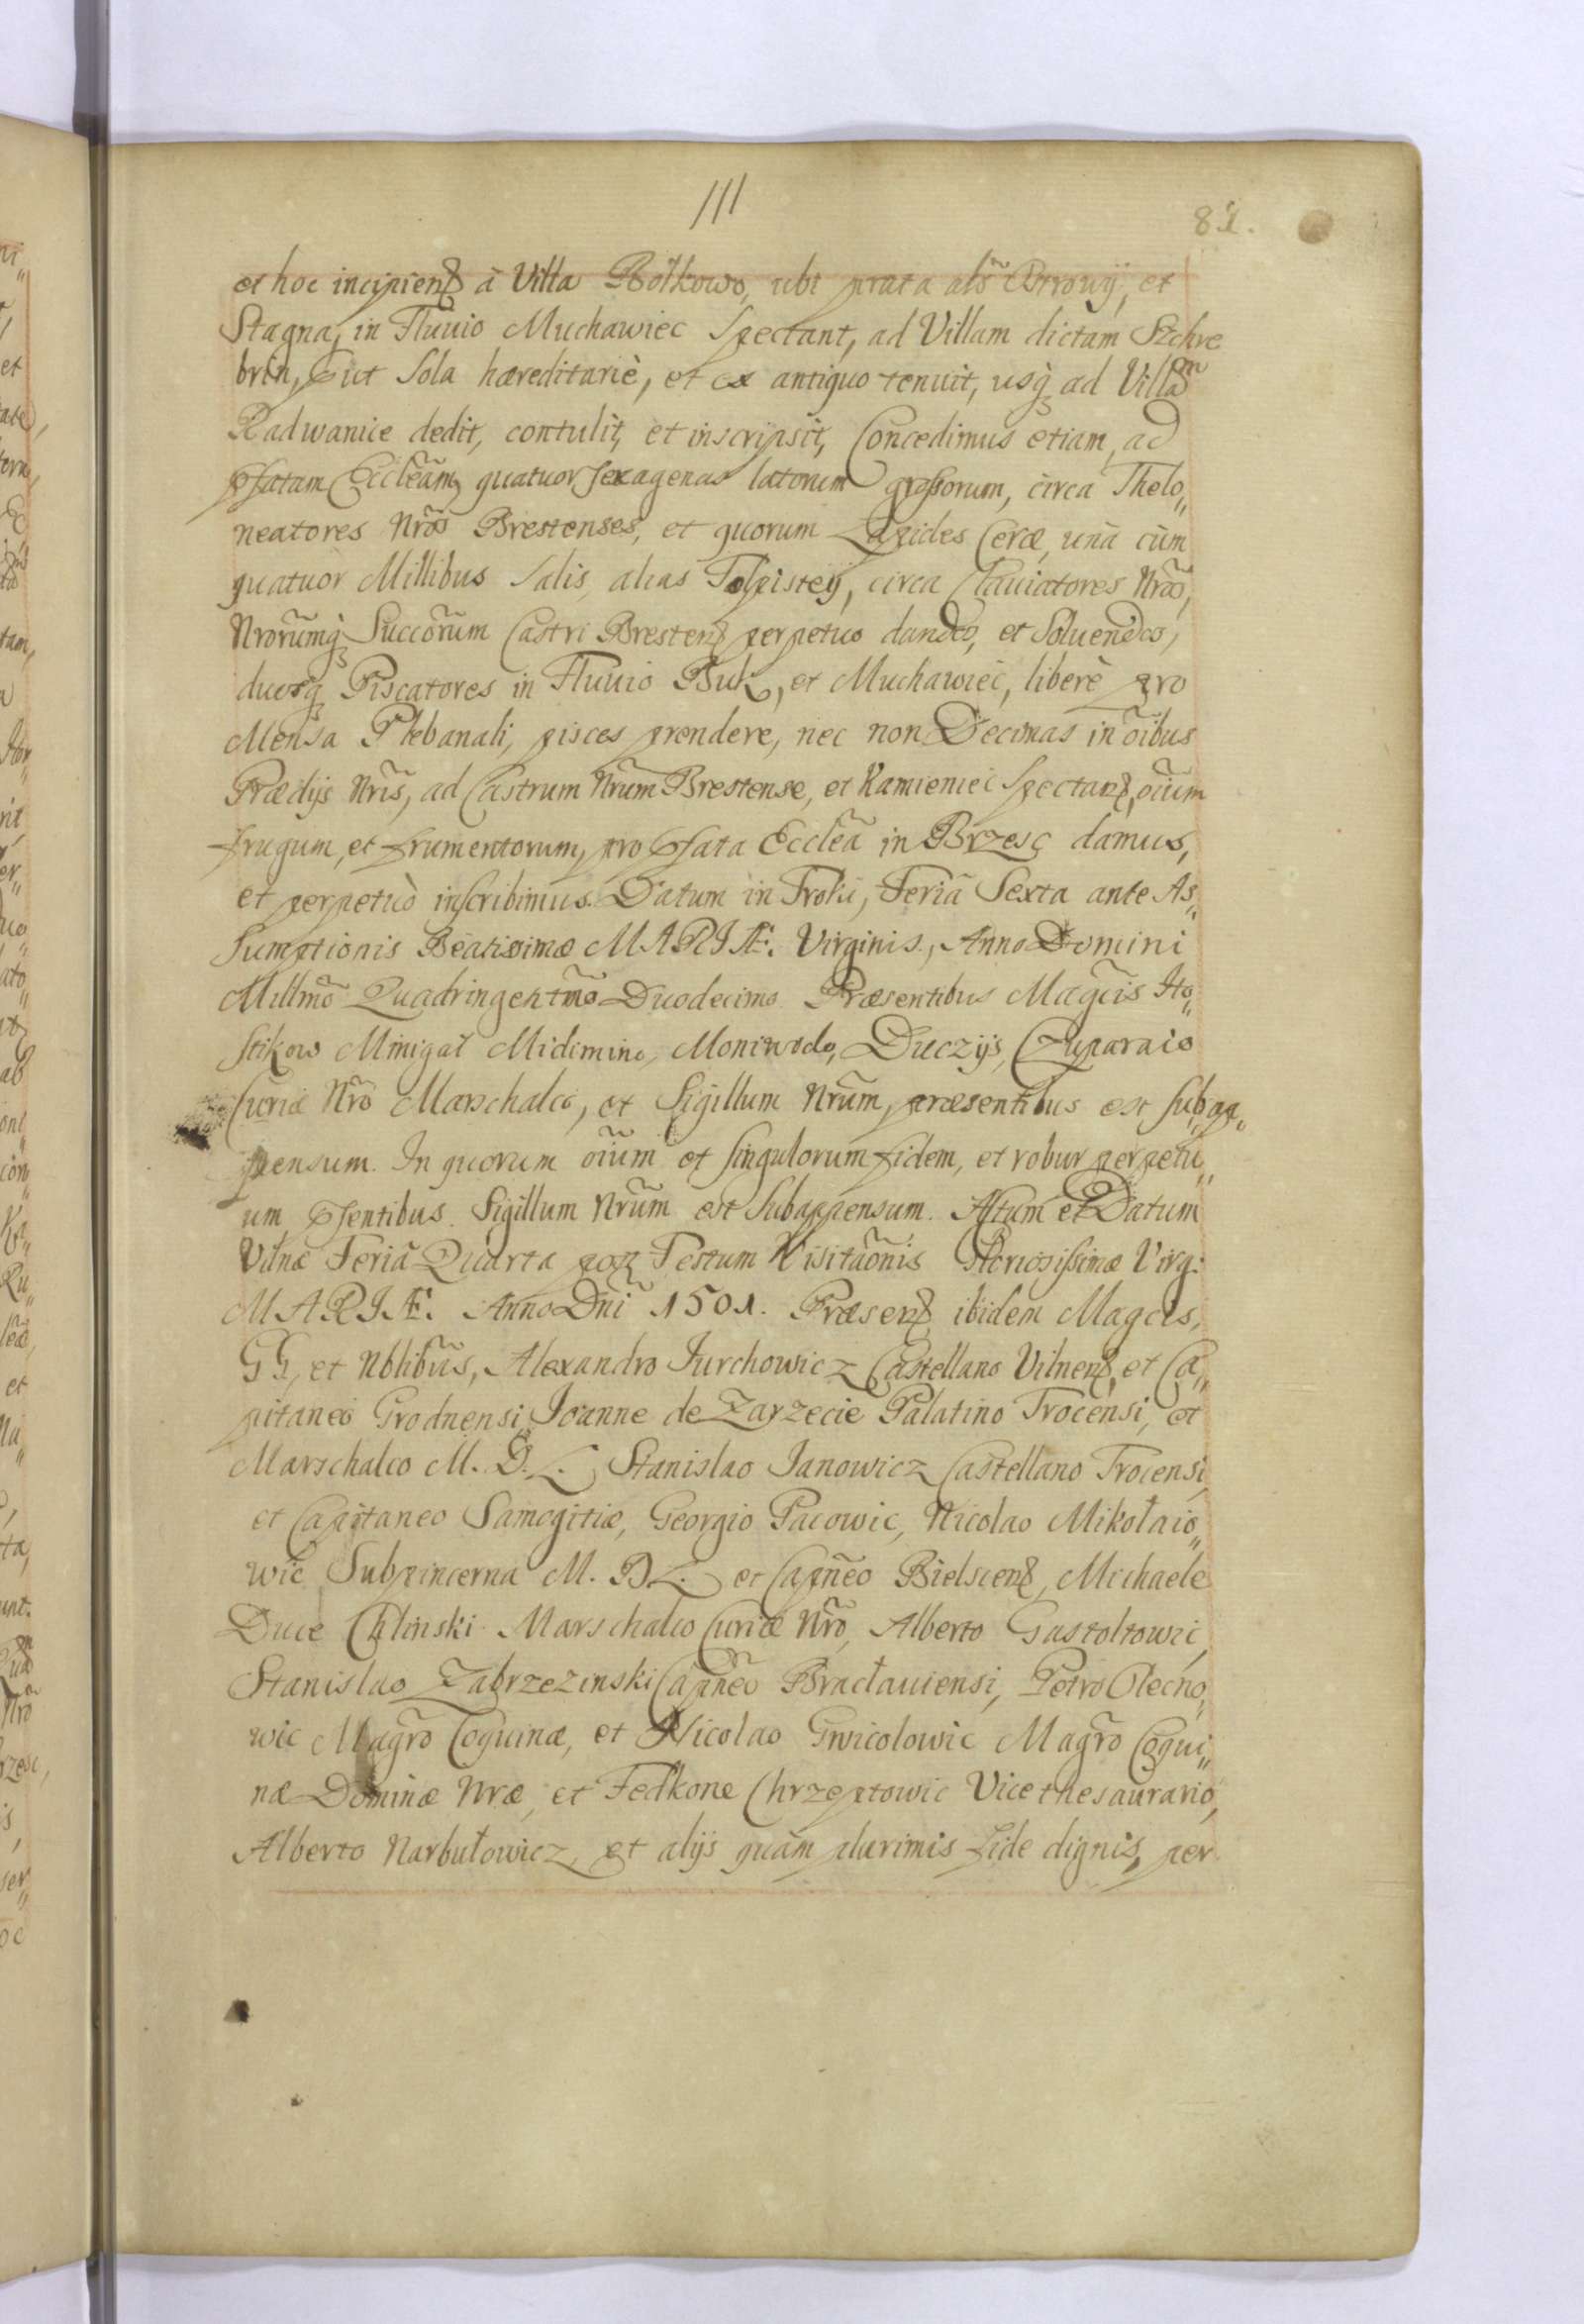 111
81.
et hoc incipienȝ à Villa Botkowo, ubi prata als̃ Ostrowÿ, et
Stagna, in Fluvio Muchawiec Spectant, ad Villam dictam Szchre
brin, put Sola hæreditariè, et ex antiquo tenuit, usq̃ ad Villam
Radwanice dedit, contulit, et inscripsit, Concedimus etiam, ad
pfatam Ecclẽam, quatuor sexagenas latorum grossorum, circa Thelo„
neatores Nrõs Brestenses, et quorum Lapides Ceræ, unà cùm
quatuor Millibus Salis, alias Tolpisteÿ, circa Clauiatores Nrõs,
Nrorũmq̃ Succõrum Castri Brestenȝ perpetuo dandos, et Soluendos,
duosq̃ Piscatores in Fluuio Buk, et Muchawiec, liberè pro
Mensa Plebanali, pisces prendere, nec non Decimas in oĩbus
Prædijs Nrĩs, ad Castrum Nrũm Brestense, et Kamieniec Spectanȝ, oĩum
frugum, et frumentorum, pro pfata Ecclẽa in Brzesç damus,
et perpetuò inscribimus. Datum in Troki, Feria Sexta ante As„
Sumptionis Beatissimæ MARIÆ. Virginis, Anno Domini
Millmõ Quadringentmõ Duodecimo. Præsentibus Magcĩs Ho„
stikow Minigal Midimino, Moniwodo, Duczijs, Czuparaio
Curiæ Nrõ Marschalco, et Sigillum Nrũm, præsentibus est subap„
pensum. In quorum oĩum et singulorum fidem, et robur perpetu„
um psentibus Sigillum Nrũm est Subappensum. Actum et Datum
Vilnæ Feria Quarta post Festum Visitaõnis Gloriosissimæ Virg:
MARIÆ. Anno Dnĩ 1501. Præsenȝ ibidem Magcis,
GG, et Nblibũs, Alexandro Jurchowicz Castellano Vilnenȝ, et Ca„
pitaneo Grodnensi, Joanne de Zarzecie Palatino Trocensi, et
Marschalco M. D. L. Stanislao Janowicz Castellano Trocensi,
et Capitaneo Samogitiæ, Georgio Pacowic, Nicolao Mikołaio„
wic Subpincerna M. D L. et Capñeo Bielscenȝ, Michaele
Duce Chlinski Marschalco Curiæ Nrõ, Alberto Gastoltowic,
Stanislao Zabrzezinski Capñeo Bracłauiensi, Petro Olechno„
wic Magrõ Coquinæ, et Nicolao Gwicolowic Magrõ Coqui„
næ Dominæ Nræ, et Fedkone Chrzeptowic Vicethesaurario,
Alberto Narbutowicz, et alijs quàm plurimis fide dignis, per